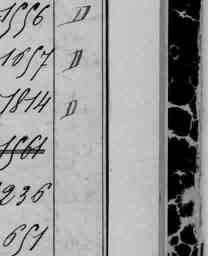 1556 D
1657 D
1814 D
1561
236
651